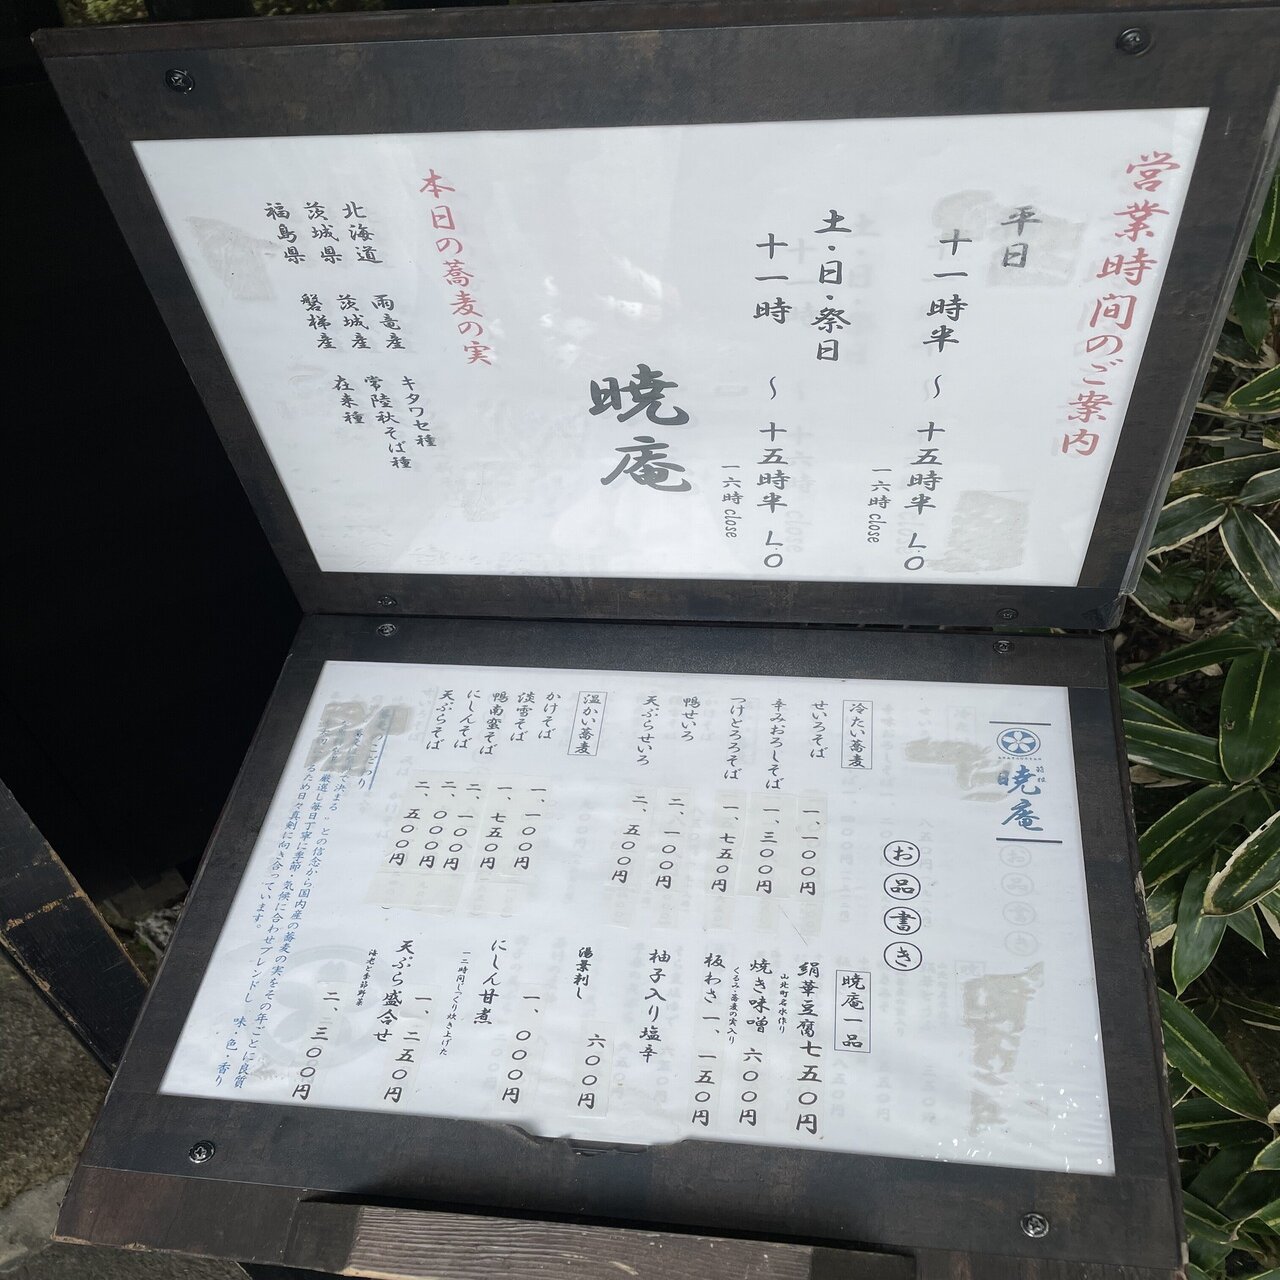 営業時間のご案内
平日
十一時半 〜 十五時半 L.O
一六時 close
土・日・祭日
十一時 〜 十五時半 L.O
一六時 close
暁庵
本日の蕎麦の実
北海道 雨竜産 キタワセ種
茨城県 茨城産 常陸秋そば種
福島県 磐梯産 在来種
箱根
暁庵
お品書き
冷たい蕎麦
せいろそば 一、一〇〇円
辛みおろしそば 一、三〇〇円
つけとろろそば 一、七五〇円
鴨せいろ 二、一〇〇円
天ぷらせいろ 二、五〇〇円
温かい蕎麦
かけそば 一、一〇〇円
淡雪そば 一、七五〇円
鴨南蛮そば 二、一〇〇円
にしんそば 二、〇〇〇円
天ぷらそば 二、五〇〇円
暁庵一品
絹華豆腐 七五〇円
山北町名水作り
焼き味噌 六〇〇円
くるみ・蕎麦の実入り
板わさ 一、一五〇円
柚子入り塩辛
湯葉刺し 六〇〇円
一、〇〇〇円
にしん甘煮
一二時間じっくり炊き上げた
一、二五〇円
天ぷら盛合せ
海老と季節野菜
二、三〇〇円
こだわり
で決まる〟との信念から国内産の蕎麦の実をその年ごとに良質
厳選し毎日丁寧に季節・気候に合わせブレンドし 味・色・香り
るため日々真剣に向き合っています。